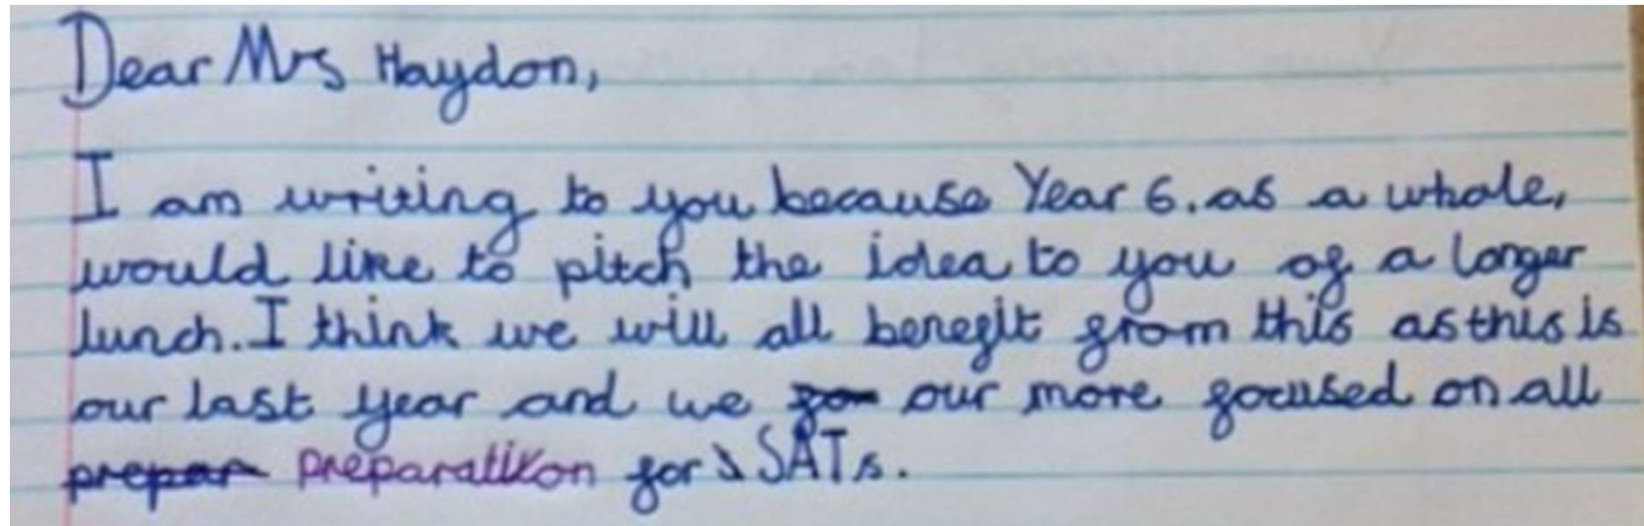 Dear Mrs Haydon,
I am writing to you because Year 6. as a whole,
would like to pitch the idea to you of a longer
lunch. I think we will all benefit from this as this is
our last year and we our more focused on all
preparation for SATs.